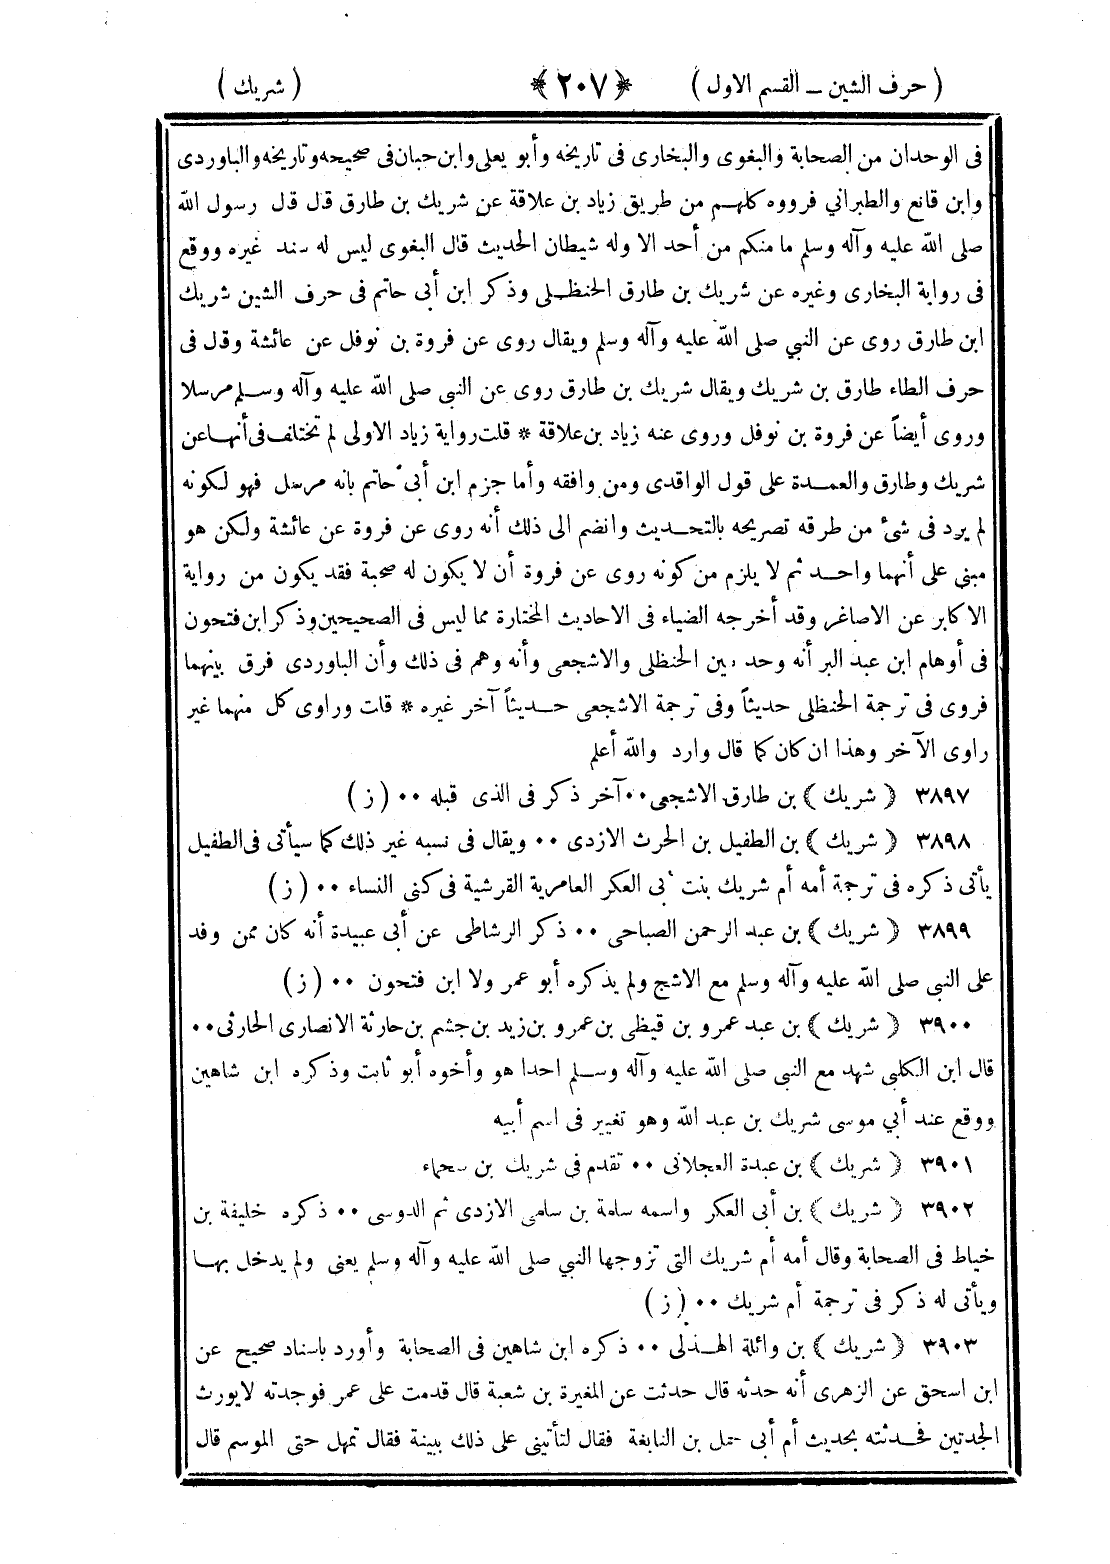 ( حرف الشين ــ القسم الاول ) ﴿ ٢٠٧ ﴾ ( شريك )
فى الوحدان من الصحابة والبغوى والبخارى فى تاريخه وأبو يعلى وابن حبان فى صحيحه وتاريخه والباوردى
وابن قانع والطبراني فرووه كلهم من طريق زياد بن علاقة عن شريك بن طارق قال قال رسول الله
صلى الله عليه وآله وسلم ما منكم من أحد الا وله شيطان الحديث قال البغوى ليس له سند غيره ووقع
فى رواية البخارى وغيره عن شريك بن طارق الحنظلى وذكر ابن أبى حاتم فى حرف الشين شريك
ابن طارق روى عن النبي صلى الله عليه وآله وسلم ويقال روى عن فروة بن نوفل عن عائشة وقال فى
حرف الطاء طارق بن شريك ويقال شريك بن طارق روى عن النبى صلى الله عليه وآله وسلم مرسلا
وروى أيضاً عن فروة بن نوفل وروى عنه زياد بن علاقة * قلت رواية زياد الاولى لم تختلف فى أنها عن
شريك وطارق والعمدة على قول الواقدى ومن وافقه وأما جزم ابن أبى حاتم بانه مرسل فهو لكونه
لم يرد فى شئ من طرقه تصريحه بالتحديث وانضم الى ذلك أنه روى عن فروة عن عائشة ولكن هو
مبنى على أنهما واحد ثم لا يلزم من كونه روى عن فروة أن لا يكون له صحبة فقد يكون من رواية
الاكابر عن الاصاغر وقد أخرجه الضياء فى الاحاديث المختارة مما ليس فى الصحيحين وذكر ابن فتحون
فى أوهام ابن عبد البر أنه وحد بين الحنظلى والاشجعى وأنه وهم فى ذلك وأن الباوردى فرق بينهما
فروى فى ترجمة الحنظلى حديثاً وفى ترجمة الاشجعى حديثاً آخر غيره * قلت وراوى كل منهما غير
راوى الآخر وهذا ان كان كما قال وارد والله أعلم
٣٨٩٧ ﴿ شريك ﴾ بن طارق الاشجعى ٠٠ آخر ذكر فى الذى قبله ٠٠ ( ز )
٣٨٩٨ ﴿ شريك ﴾ بن الطفيل بن الحرث الازدى ٠٠ ويقال فى نسبه غير ذلك كما سيأتى فى الطفيل
يأتى ذكره فى ترجمة أمه أم شريك بنت أبى العكر العامرية القرشية فى كنى النساء ٠٠ ( ز )
٣٨٩٩ ﴿ شريك ﴾ بن عبد الرحمن الصباحى ٠٠ ذكر الرشاطى عن أبى عبيدة أنه كان ممن وفد
على النبى صلى الله عليه وآله وسلم مع الاشج ولم يذكره أبو عمر ولا ابن فتحون ٠٠ ( ز )
٣٩٠٠ ﴿ شريك ﴾ بن عبد عمرو بن قيظى بن عمرو بن زيد بن جشم بن حارثة الانصارى الحارثى ٠٠
قال ابن الكلبى شهد مع النبى صلى الله عليه وآله وسلم احدا هو وأخوه أبو ثابت وذكره ابن شاهين
ووقع عند أبي موسى شريك بن عبد الله وهو تغيير فى اسم أبيه
٣٩٠١ ﴿ شريك ﴾ بن عبدة العجلانى ٠٠ تقدم فى شريك بن سحماء
٣٩٠٢ ﴿ شريك ﴾ بن أبى العكر واسمه سامة بن سامى الازدى ثم الدوسى ٠٠ ذكره خليفة بن
خياط فى الصحابة وقال أمه أم شريك التى تزوجها النبي صلى الله عليه وآله وسلم يعنى ولم يدخل بها
ويأتى له ذكر فى ترجمة أم شريك ٠٠ ( ز )
٣٩٠٣ ﴿ شريك ﴾ بن وائلة الهذلى ٠٠ ذكره ابن شاهين فى الصحابة وأورد باسناد صحيح عن
ابن اسحق عن الزهرى أنه حدثه قال حدثت عن المغيرة بن شعبة قال قدمت على عمر فوجدته لايورث
الجدتين فحدثته بحديث أم أبى حمل بن النابغة فقال لتأتينى على ذلك ببينة فقال تمهل حتى الموسم قال